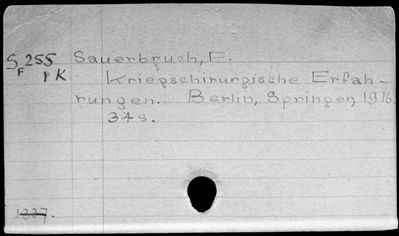 S 255 Sauerbruch, F.
F 1 K Kriegschirurgische Erfah-
rungen. Berlin, Springer, 1916.
34 s.
1337.